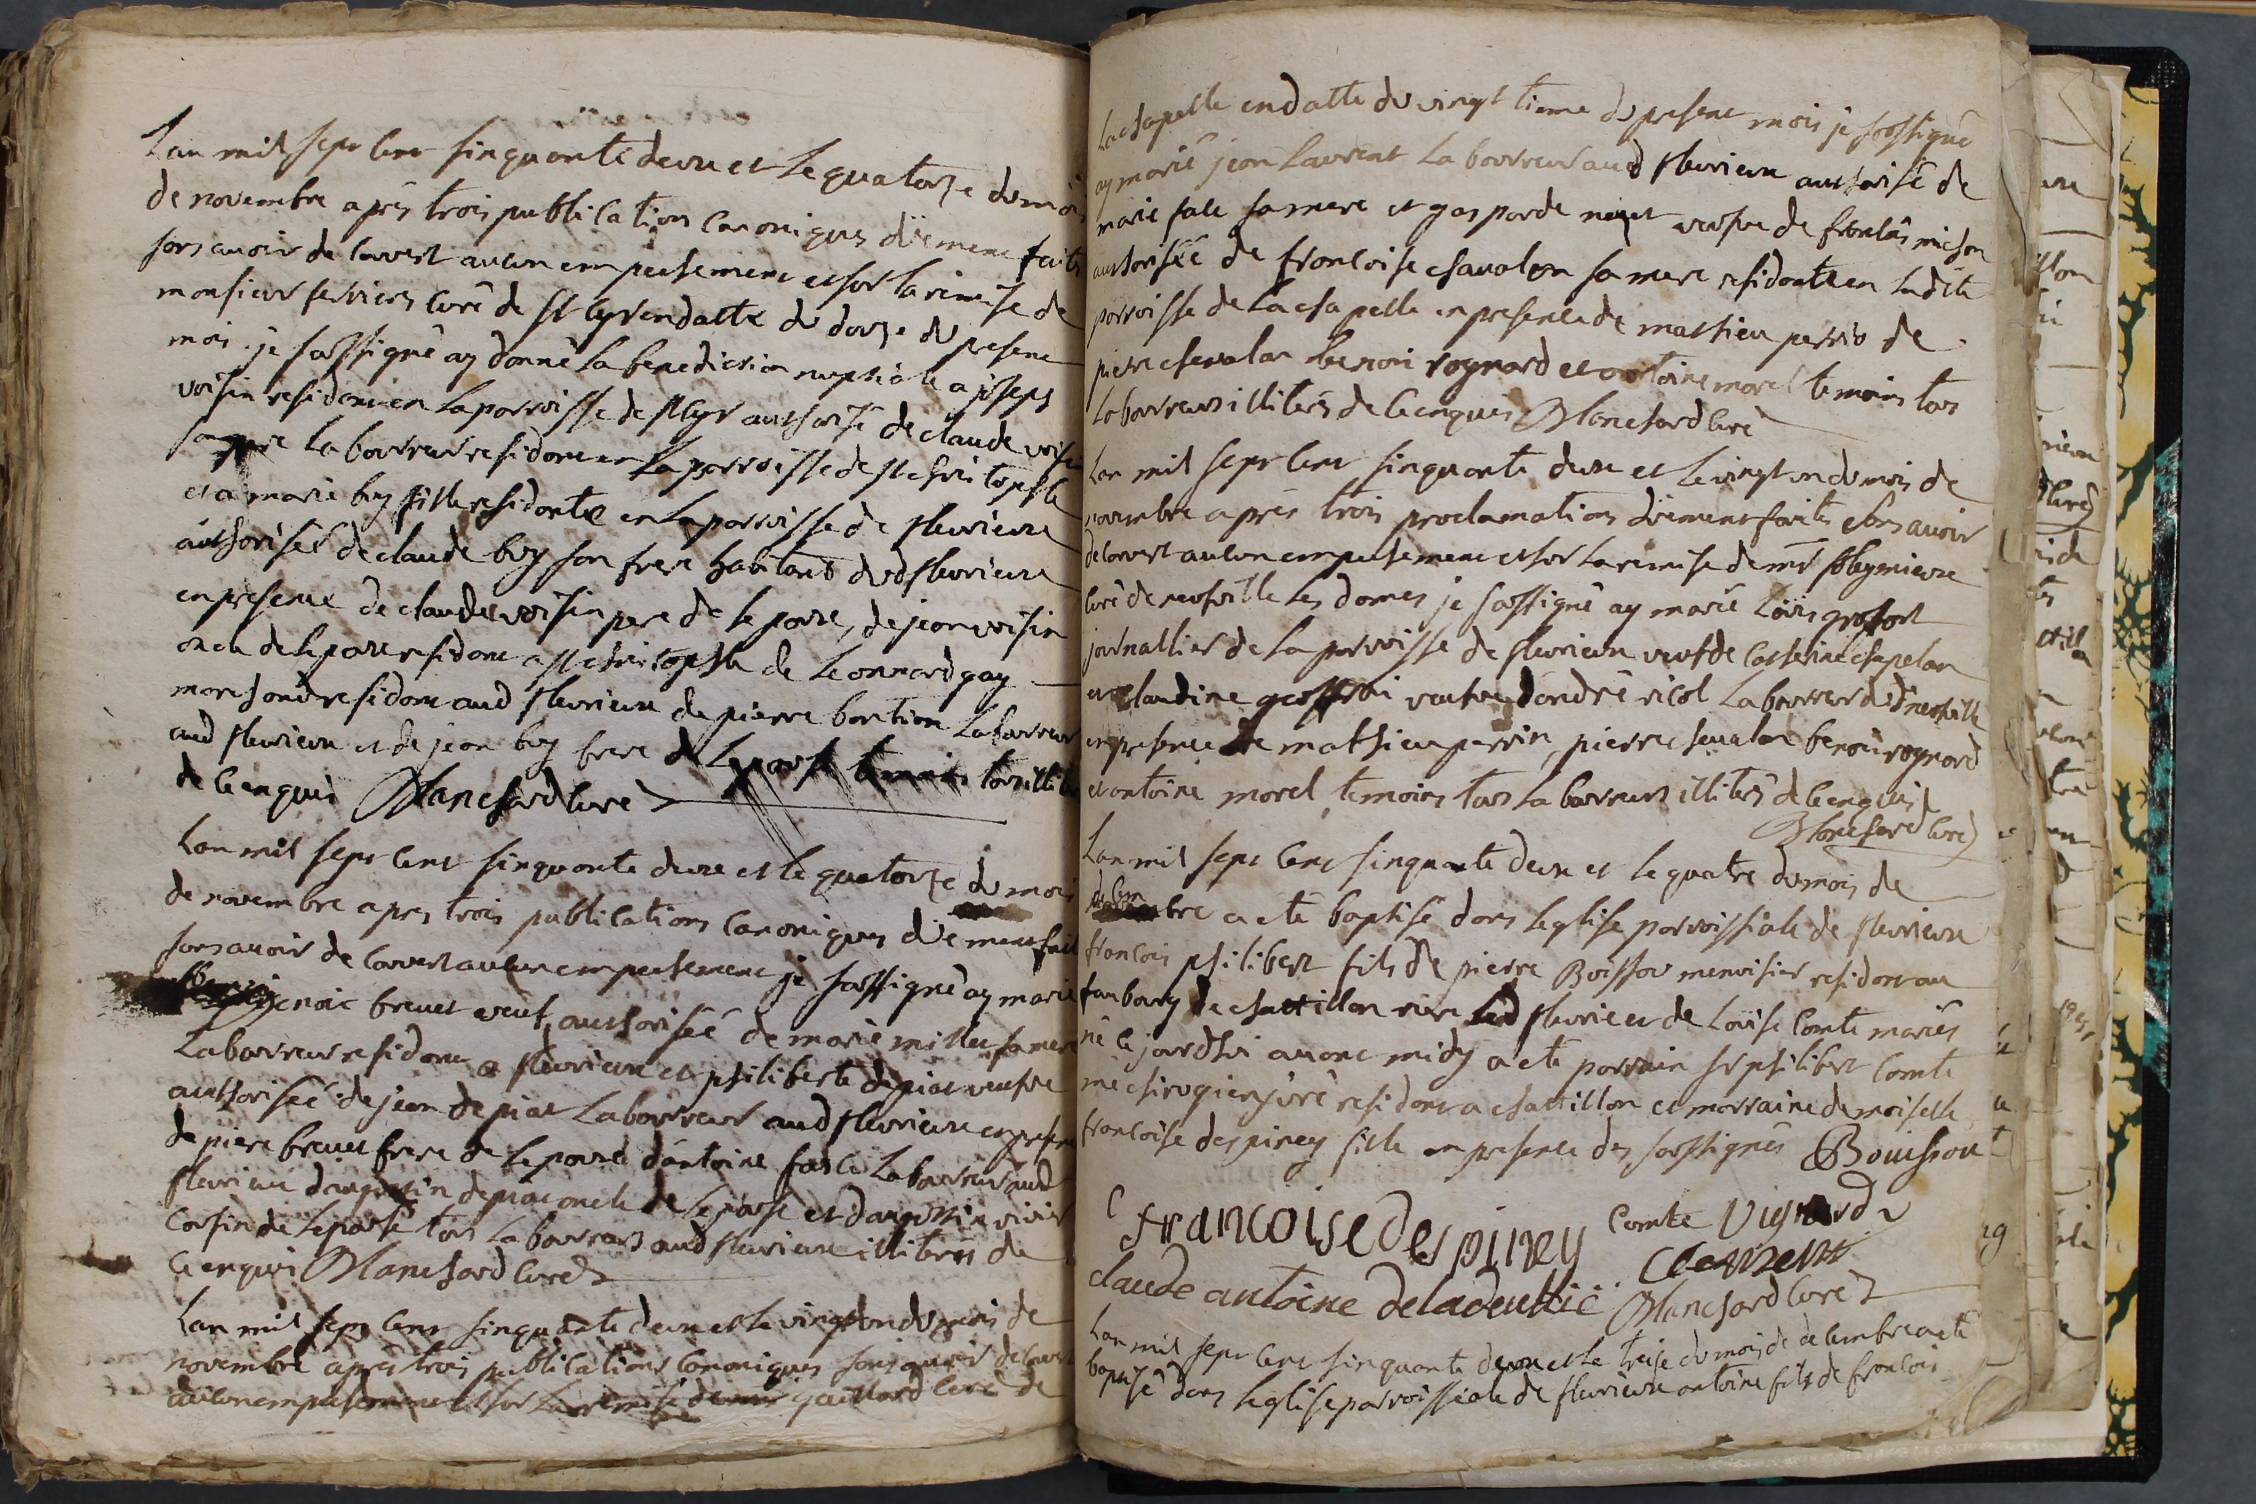 Lan mil sept cent sinquante deux et le quatorze du mois
de novembre aprés trois publications canoniques düement faites
sans avoir decouvert aucun empechement et sur la remise de
monsieur curé de St Cyr en datte du douze du present
mois je soussigné ay donné la benediction nuptiale a joseph
voisin residant en la parroisse de St Cyr authorisé de claude voisin
son pere laboureur residant en la parroisse de St christophle
et a marie buy fille residante en la parroisse de fleurieux
authorisée de claude buy son frere habitant dud fleurieux
en presence de claude voisin pere de lepoux, de jean voisin
oncle de lepoux residant a St christophle de Leonnard gay
marchand residant aud fleurieux de pierre laboureur
aud fleurieux et de jean buy frere de temoins tous illiterés
de ce enquis Blanchard curé
Lan mil sept cent sinquante deux et le quatorze du mois
de novembre apres trois publications canoniques düement faites
sans avoir decouvert aucun empechement je soussigné ay marié
brevet veuf authorisée de marie millet sa mere
laboureur residant a fleurieux et philiberte depiat veufve
authorisée de jean depiat laboureur aud fleurieux en presence
de piere brevet frere de lepoux dantoine laboureur aud
fleurieux depiat oncle de lepouse et
cousin de lepouse tous laboureurs aud fleurieux illiterés de
ce enquis Blanchard curé
Lan mil sept cent sinquante deux et le vingt un du mois de
novembre aprés trois publications canoniques sans avoir decouvert
aucun empechement et sur la remise de gaillard curé de
la chapelle en datte du vingtieme du present mois je soussigné
ay marié jean laurent laboureur aud fleurieux authorisé de
marie sa mere et gasparde veufve de michon
authorisée de francoise chavalon sa mere residante en ladite
parroisse de la chapelle en presence de mathieu perrin de
pierre chevalon benoi rognard et antoine morel temoins tous
laboureurs illiterés de ce enquis Blanchard curé
Lan mil sept cent sinquante deux et le vingt un du mois de
novembre aprés trois proclamations düement faites sans avoir
decouvert aucun empechement et sur la remise de mr
curé de neufville les dames je soussigné ay marié Loüis
journallier de la parroisse de fleurieux veuf de catherine chapelon
et claudine geoffrai veufve dandré ricol laboureur dud neufville
en presence de mathieu perrin, pierre chevalon benoi rognard
et antoine morel temoins tous laboureurs illiterés de ce enquis
Blanchard curé
Lan mil sept cent sinquante deux et le quatre du mois de
decembre a eté baptisé dans leglise parroissiale de fleurieux
francois philibert fils de pierre Boisson menuisier residant au
faubourg de chattillon rière led fleurieux et de Loüise Comte mariés
né ce jourdhui avant midy a eté parrain Sr philibert Comte
me chirugien juré residant a chattillon et marraine demoiselle
francoise despiney fille en presence des soussignés Bouisson
francoise despiney Comte Vignard
Clement
claude antoine Blanchard curé
Lan mil sept cent sinquante deux et le treise du mois de decembre a eté
baptisé dans leglise parroissiale de fleurieux antoine fils de francois